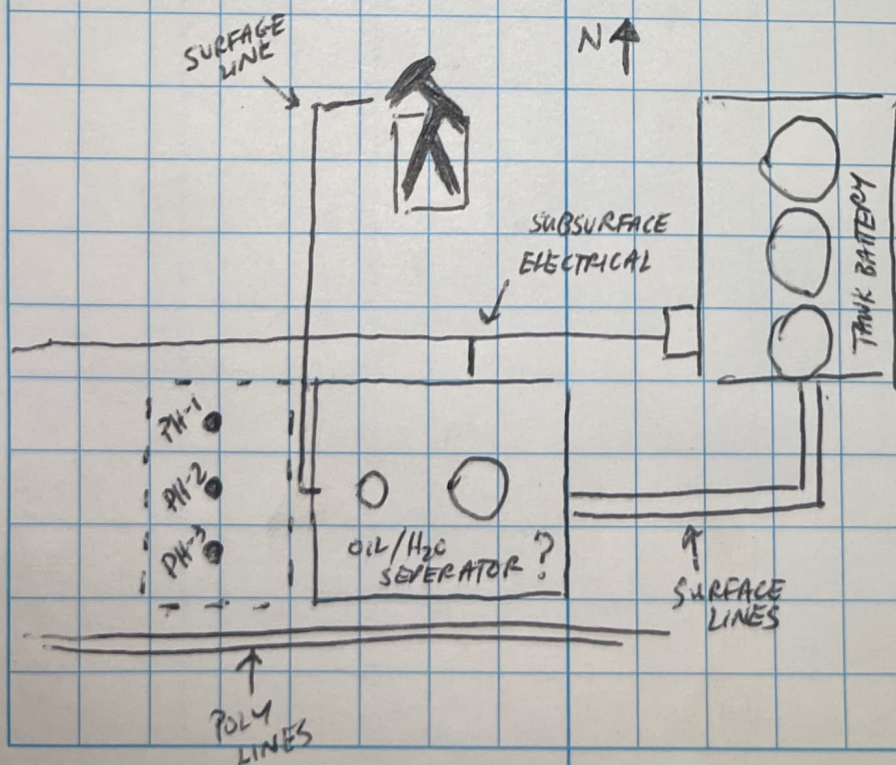 SURFAGE
LINE
N
SUBSURFACE
ELECTRICAL
TANK BATTERY
PH-1
PH-2
PH-3
OIL/H2O
SEPERATOR ?
SURFACE
LINES
POLY
LINES